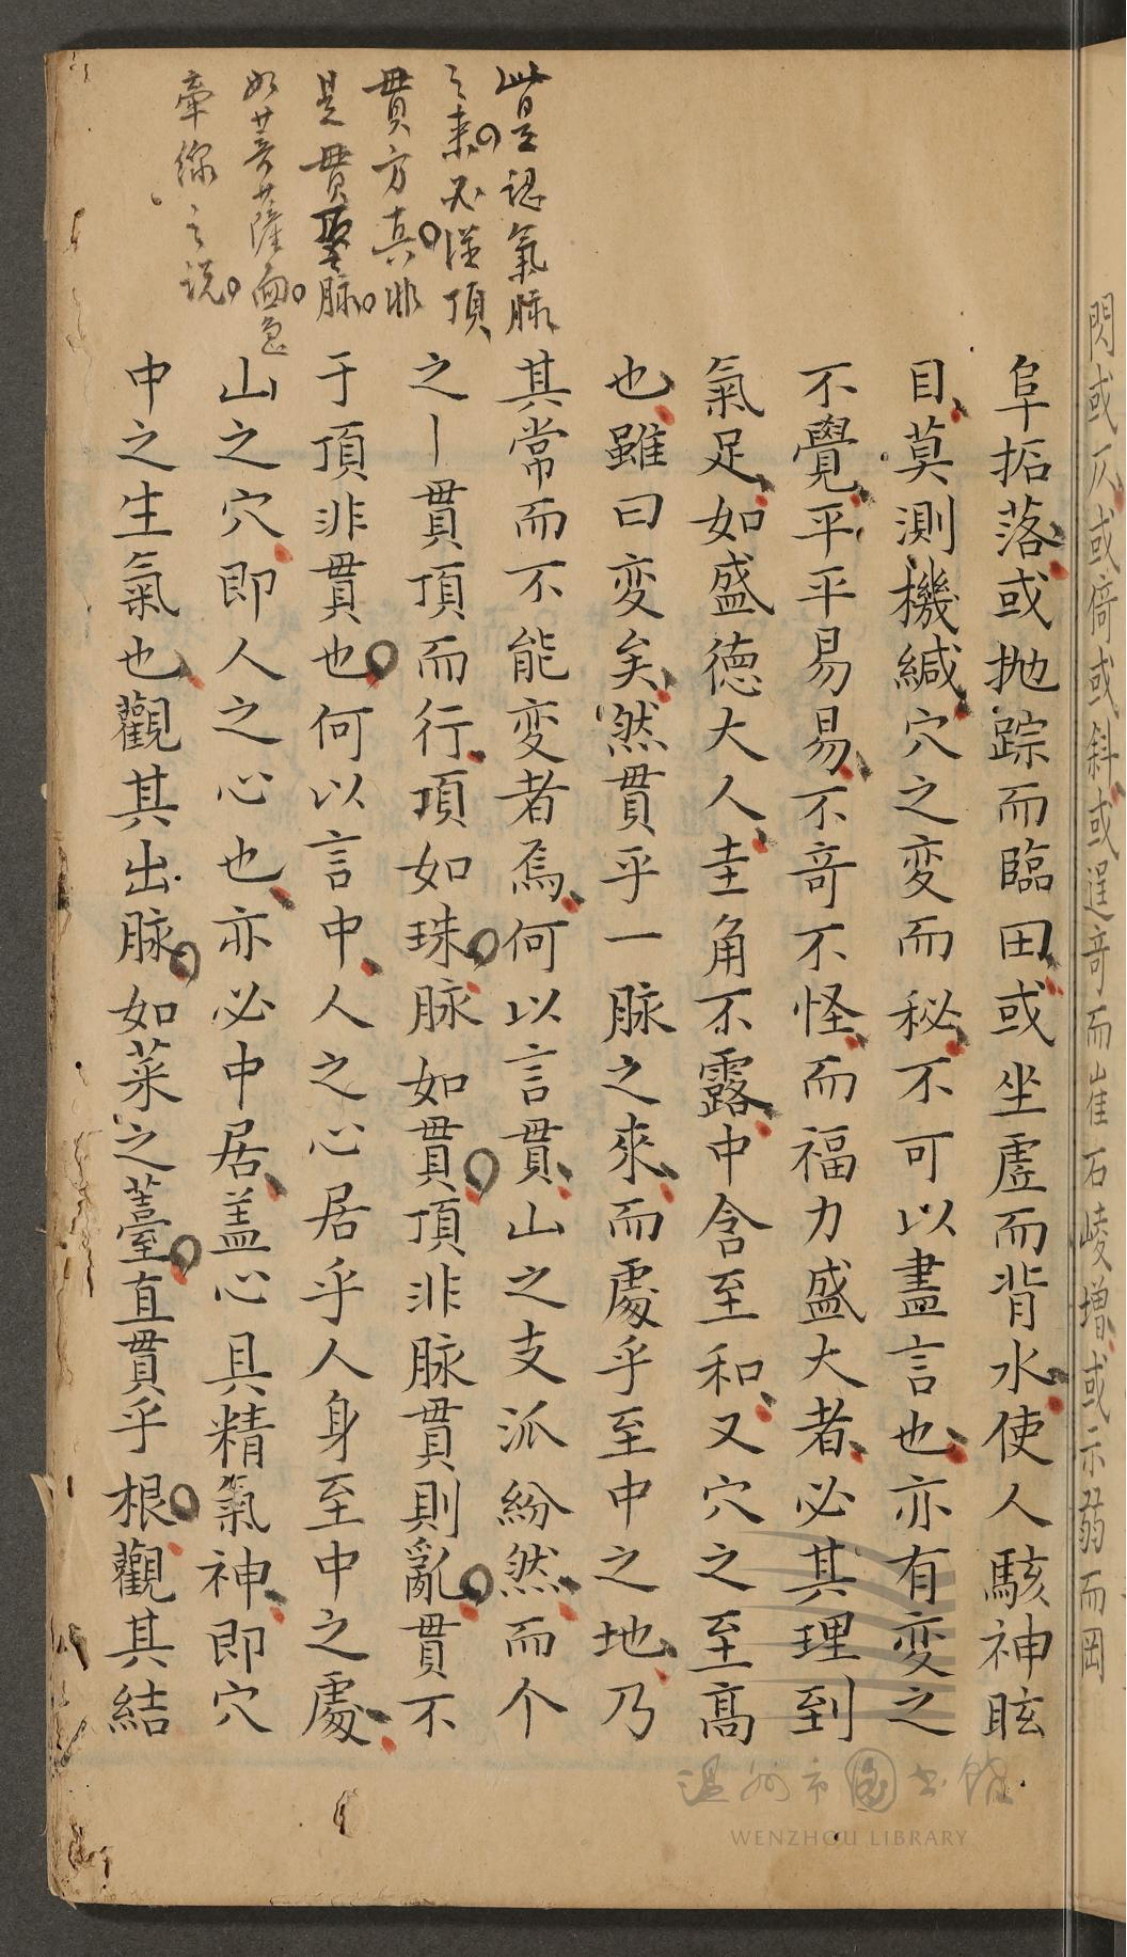 閃或仄或倚或斜或逞奇而崔石崚增或示弱而岡
阜拓落或拋踪而臨田或坐虛而背水使人駭神眩
目莫測機緘穴之変而秘不可以盡言也亦有变之
不覺平平易易不竒不怪而福力盛大者必其理到
氣足如盛德大人圭角不露中含至和又穴之至髙
也雖曰变矣然貫乎一脉之來而處乎至中之地乃
其常而不能变者焉何以言貫山之支派紛然而个
之丨貫頂而行項如珠脉如貫頂非脉貫則亂貫不
于頂非貫也何以言中人之心居乎人身至中之處
山之穴即人之心也亦必中居盖心具精氣神即穴
中之生氣也觀其出脉如菜之薹直貫乎根觀其結
豈認氣脉
之来必從頂
貫方真非
是貫聖脉
如菩薩面
牽線之说
温州市图书馆
WENZHOU LIBRARY